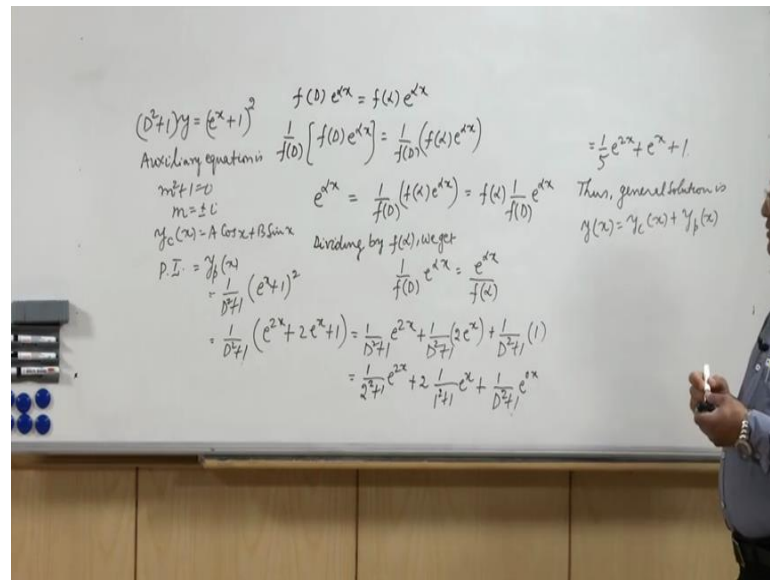 (D²+1)y = (eˣ+1)²
Auxiliary equation is
m²+1=0
m=±i
y_c(x) = A Cos x + B Sin x
P.I. = y_p(x)
= 1/(D²+1) (eˣ+1)²
= 1/(D²+1) (e²ˣ+2eˣ+1) = 1/(D²+1) e²ˣ + 1/(D²+1) (2eˣ) + 1/(D²+1) (1)
= 1/(2²+1) e²ˣ + 2 1/(1²+1) eˣ + 1/(D²+1) e⁰ˣ
f(D) e^{αx} = f(α) e^{αx}
1/f(D) [f(D) e^{αx}] = 1/f(D) (f(α) e^{αx})
e^{αx} = 1/f(D) (f(α) e^{αx}) = f(α) 1/f(D) e^{αx}
Dividing by f(α), we get
1/f(D) e^{αx} = e^{αx}/f(α)
= 1/5 e²ˣ + eˣ + 1
Thus, general solution is
y(x) = y_c(x) + y_p(x)